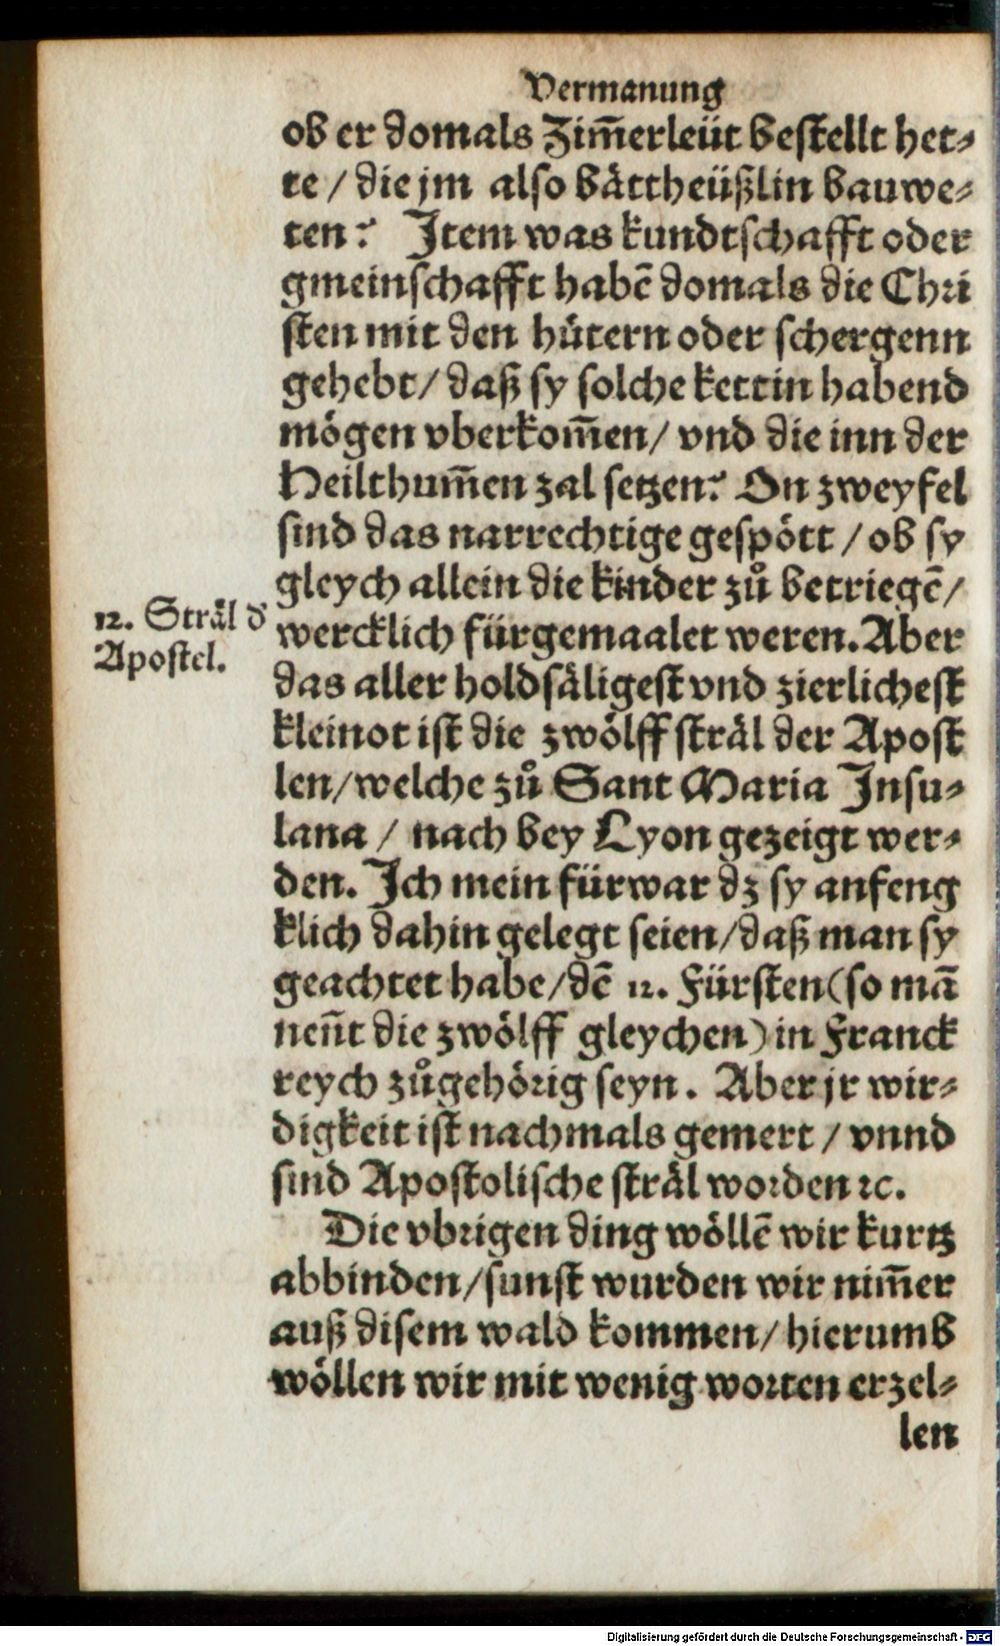 Vermanung
ob er domals Zim̄erleüt bestellt het⸗
te / die jm also bättheüßlin bauwe⸗
ten? Item was kundtschafft oder
gmeinschafft habē domals die Chri
sten mit den hütern oder schergenn
gehebt / daß sy solche kettin habend
mögen vberkom̄en / vnd die inn der
Heilthum̄en zal setzen? On zweyfel
sind das narrechtige gespött / ob sy
gleych allein die kinder zů betriegē /
wercklich fürgemaalet weren. Aber
12. Sträl d'
Apostel.
das aller holdsäligest vnd zierlichest
kleinot ist die zwölff sträl der Apost
len / welche zů Sant Maria Insu⸗
lana / nach bey Lyon gezeigt wer⸗
den. Ich mein fürwar dz sy anfeng
klich dahin gelegt seien / daß man sy
geachtet habe / dē 12. Fürsten (so mā
nen̄t die zwölff gleychen) in Franck
reych zůgehörig seyn. Aber jr wir⸗
digkeit ist nachmals gemert / vnnd
sind Apostolische sträl worden ꝛc.
Die vbrigen ding wöllē wir kurtz
abbinden / sunst wurden wir nim̄er
auß disem wald kommen / hierumb
wöllen wir mit wenig worten erzel⸗
len
Digitalisierung gefördert durch die Deutsche Forschungsgemeinschaft - DFG